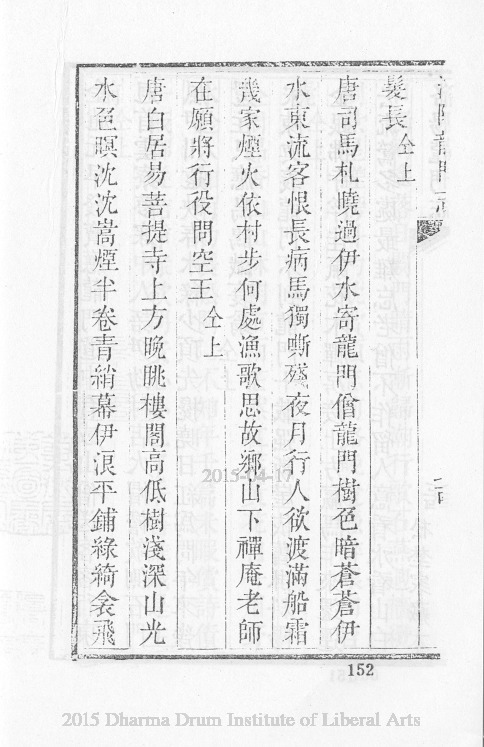 龍門
髮長 仝上
唐司馬札曉過伊水寄龍門僧龍門樹色暗蒼蒼伊
水東流客恨長病馬獨嘶殘夜月行人欲渡滿船霜
幾家煙火依村步何處漁歌思故鄉山下禪庵老師
在願將行役問空王 仝上
唐白居易菩提寺上方晚眺樓閣高低樹淺深山光
水色暝沈沈嵩煙半卷青綃幕伊浪平鋪綠綺衾飛
2015-04-17
152
2015 Dharma Drum Institute of Liberal Arts